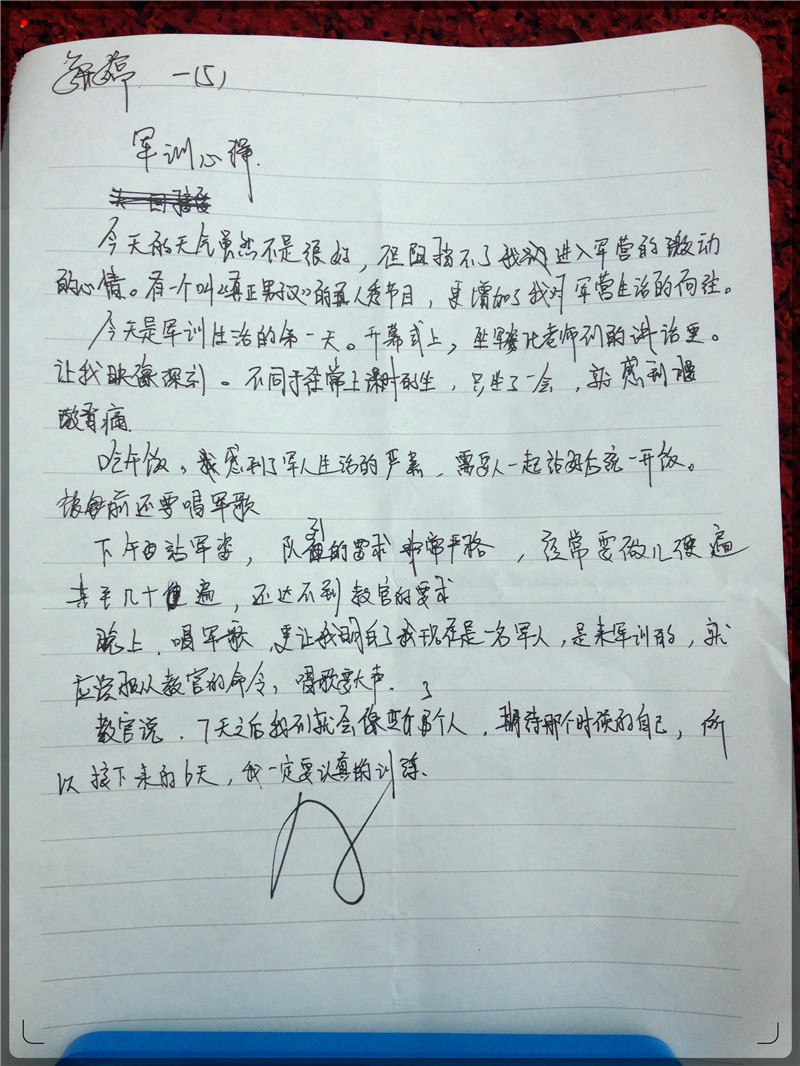 一(5)
军训心得.
今天的天气虽然不是很好,但阻挡不了我们进入军营的激动
的心情。有一个叫《真正男子汉》的真人秀节目,更增加了我对军营生活的向往。
今天是军训生活的第一天。开幕式上,老师们的讲话更。
让我映像深刻。不同于往常上课时的坐,只坐了一会,就感到腰
酸背痛.
吃午饭,我感到了军人生活的严肃,需要人一起站好后统一开饭。
前还要唱军歌
下午的站军姿,队列的要求非常严格,经常要做几遍
甚至几十遍,还达不到教官的要求
晚上.唱军歌,更让我明白了我现在是一名军人,是来军训的,就
应该服从教官的命令,唱歌要大声.
教官说.7天之后我们就会像变了个人.期待那个时候的自己,所
以接下来的6天,我一定要认真的训练.